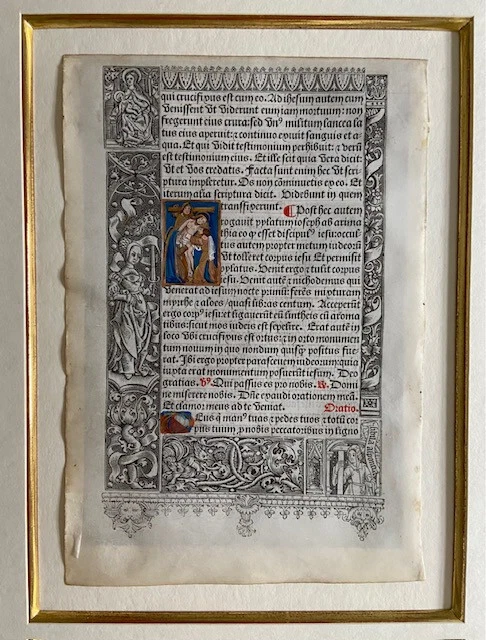 qui crucifixus est cum eo. Ad ihesum autem cum
venissent vt viderunt eum iam mortuum: non
fregerunt eius crura: sed vn⁹ militum lancea la
tus eius aperuit: ⁊ continuo exiuit sanguis et a-
qua. Et qui vidit testimonium perhibuit: ⁊ verū
est testimonium eius. Et ille scit quia vera dicit:
vt et vos credatis. Facta sunt enim hec vt scri-
ptura impleretur. Os non cōminuetis ex eo. Et
iterum alia scriptura dicit. Videbunt in quem
transfixerunt. ¶ Post hec autem
rogauit pylatum ioseph ab arima
thia eo ꝙ esset discipul⁹ iesu: occul-
tus autem propter metum iudeorū
vt tolleret corpus iesu Et permisit
pylatus. Venit ergo ⁊ tulit corpus
iesu. Venit autē ⁊ nichodemus qui
venerat ad iesum nocte primū: ferēs mixturam
myrrhe ⁊ aloes/quasi libras centum. Acceperūt
ergo corp⁹ iesu: et ligauerūt eū lintheis cū aroma
tibus: sicut mos iudeis est sepelire. Erat autē in
loco vbi crucifixus est ortus: ⁊ in orto monumen
tum nouum in quo nondum quisꝙ̄ positus fue
rat. Ibi ergo propter parasceuem iudeorum: quia
iuxta erat monumentum posuerūt iesum. Deo
gratias. ℣. Qui passus es pro nobis. ℟. Domi
ne miserere nobis. Dñe exaudi orationem meā.
Et clamor meus ad te veniat. Oratio.
Eus q̄ man⁹ tuas ⁊ pedes tuos ⁊ totū cor
pus tuum ꝓ nobis peccatoribus in ligno